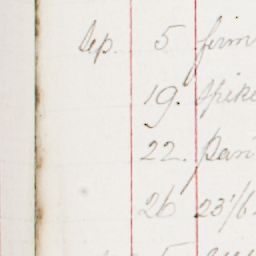 Sep. 5 firm
19. Spike
22. Pan
26 23/6